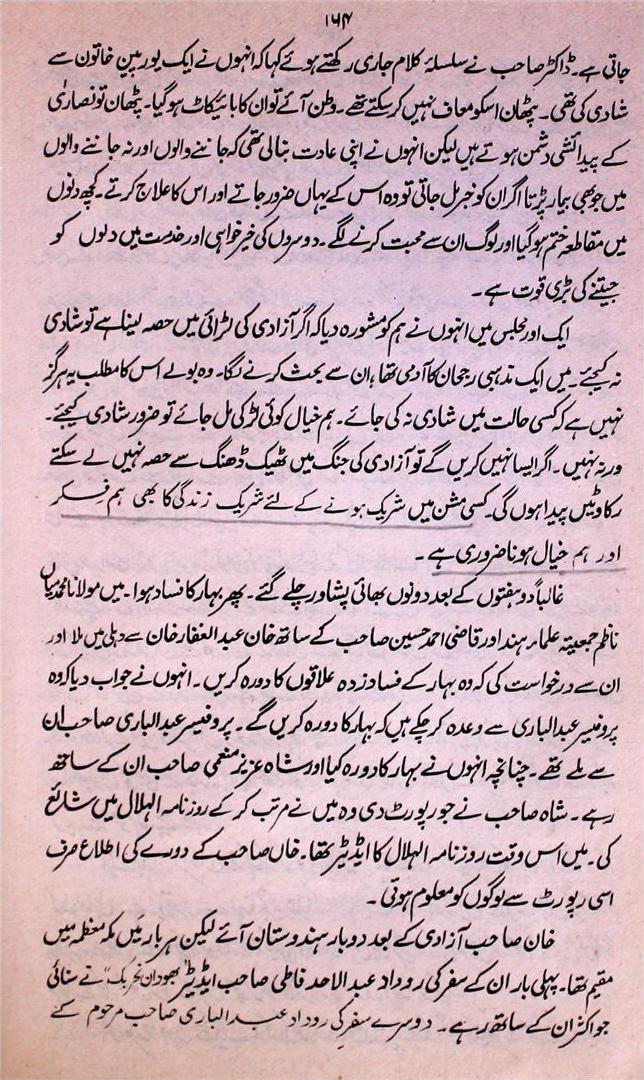 ۱۶۴
جاتی ہے۔ ڈاکٹر صاحب نے سلسلۂ کلام جاری رکھتے ہوئے کہا کہ انہوں نے ایک یورپین خاتون سے
شادی کی تھی۔ پٹھان اسکو معاف نہیں کر سکتے تھے۔ وطن آئے تو ان کا بائیکاٹ ہو گیا۔ پٹھان تو نصاریٰ
کے پیدائشی دشمن ہوتے ہیں لیکن انہوں نے اپنی عادت بنالی تھی کہ جاننے والوں اور نہ جاننے والوں
میں جو بھی بیمار پڑتا اگر ان کو خبر مل جاتی تو وہ اس کے یہاں ضرور جاتے اور اس کا علاج کرتے۔ کچھ دنوں
میں مقاطعہ ختم ہو گیا اور لوگ ان سے محبت کرنے لگے۔ دوسروں کی خیر خواہی اور خدمت میں دلوں کو
جیتنے کی بڑی قوت ہے۔
ایک اور مجلس میں انہوں نے ہم کو مشورہ دیا کہ اگر آزادی کی لڑائی میں حصہ لینا ہے تو شادی
نہ کیجئے۔ میں ایک مذہبی رجحان کا آدمی تھا، ان سے بحث کرنے لگا۔ وہ بولے اس کا مطلب یہ ہرگز
نہیں ہے کہ کسی حالت میں شادی نہ کی جائے۔ ہم خیال کوئی لڑکی مل جائے تو ضرور شادی کیجئے۔
ورنہ نہیں۔ اگر ایسا نہیں کریں گے تو آزادی کی جنگ میں ٹھیک ڈھنگ سے حصہ نہیں لے سکتے
رکاوٹیں پیدا ہوں گی۔ کسی مشن میں شریک ہونے کے لئے شریک زندگی کا بھی ہم فکر
اور ہم خیال ہونا ضروری ہے۔
غالباً دو ہفتوں کے بعد دونوں بھائی پشاور چلے گئے۔ پھر بہار کا فساد ہوا۔ میں مولانا محمد میاں
ناظم جمعیۃ علماء ہند اور قاضی احمد حسین صاحب کے ساتھ خان عبدالغفار خان سے دہلی میں ملا اور
ان سے درخواست کی کہ وہ بہار کے فساد زدہ علاقوں کا دورہ کریں۔ انہوں نے جواب دیا کہ وہ
پروفیسر عبدالباری سے وعدہ کر چکے ہیں کہ بہار کا دورہ کریں گے۔ پروفیسر عبدالباری صاحب ان
سے ملے تھے۔ چنانچہ انہوں نے بہار کا دورہ کیا اور شاہ عزیز منعمی صاحب ان کے ساتھ
رہے۔ شاہ صاحب نے جو رپورٹ دی وہ میں نے مرتب کر کے روزنامہ الہلال میں شائع
کی۔ میں اس وقت روزنامہ الہلال کا ایڈیٹر تھا۔ خاں صاحب کے دورے کی اطلاع صرف
اسی رپورٹ سے لوگوں کو معلوم ہوتی۔
خان صاحب آزادی کے بعد دو بار ہندوستان آئے لیکن ہر بار میں مکہ معظمہ میں
مقیم تھا۔ پہلی بار ان کے سفر کی روداد عبدالاحد فاطمی صاحب ایڈیٹر "بھودان تحریک" نے سنائی
جو اکثر ان کے ساتھ رہے۔ دوسرے سفر کی روداد عبدالباری صاحب مرحوم نے